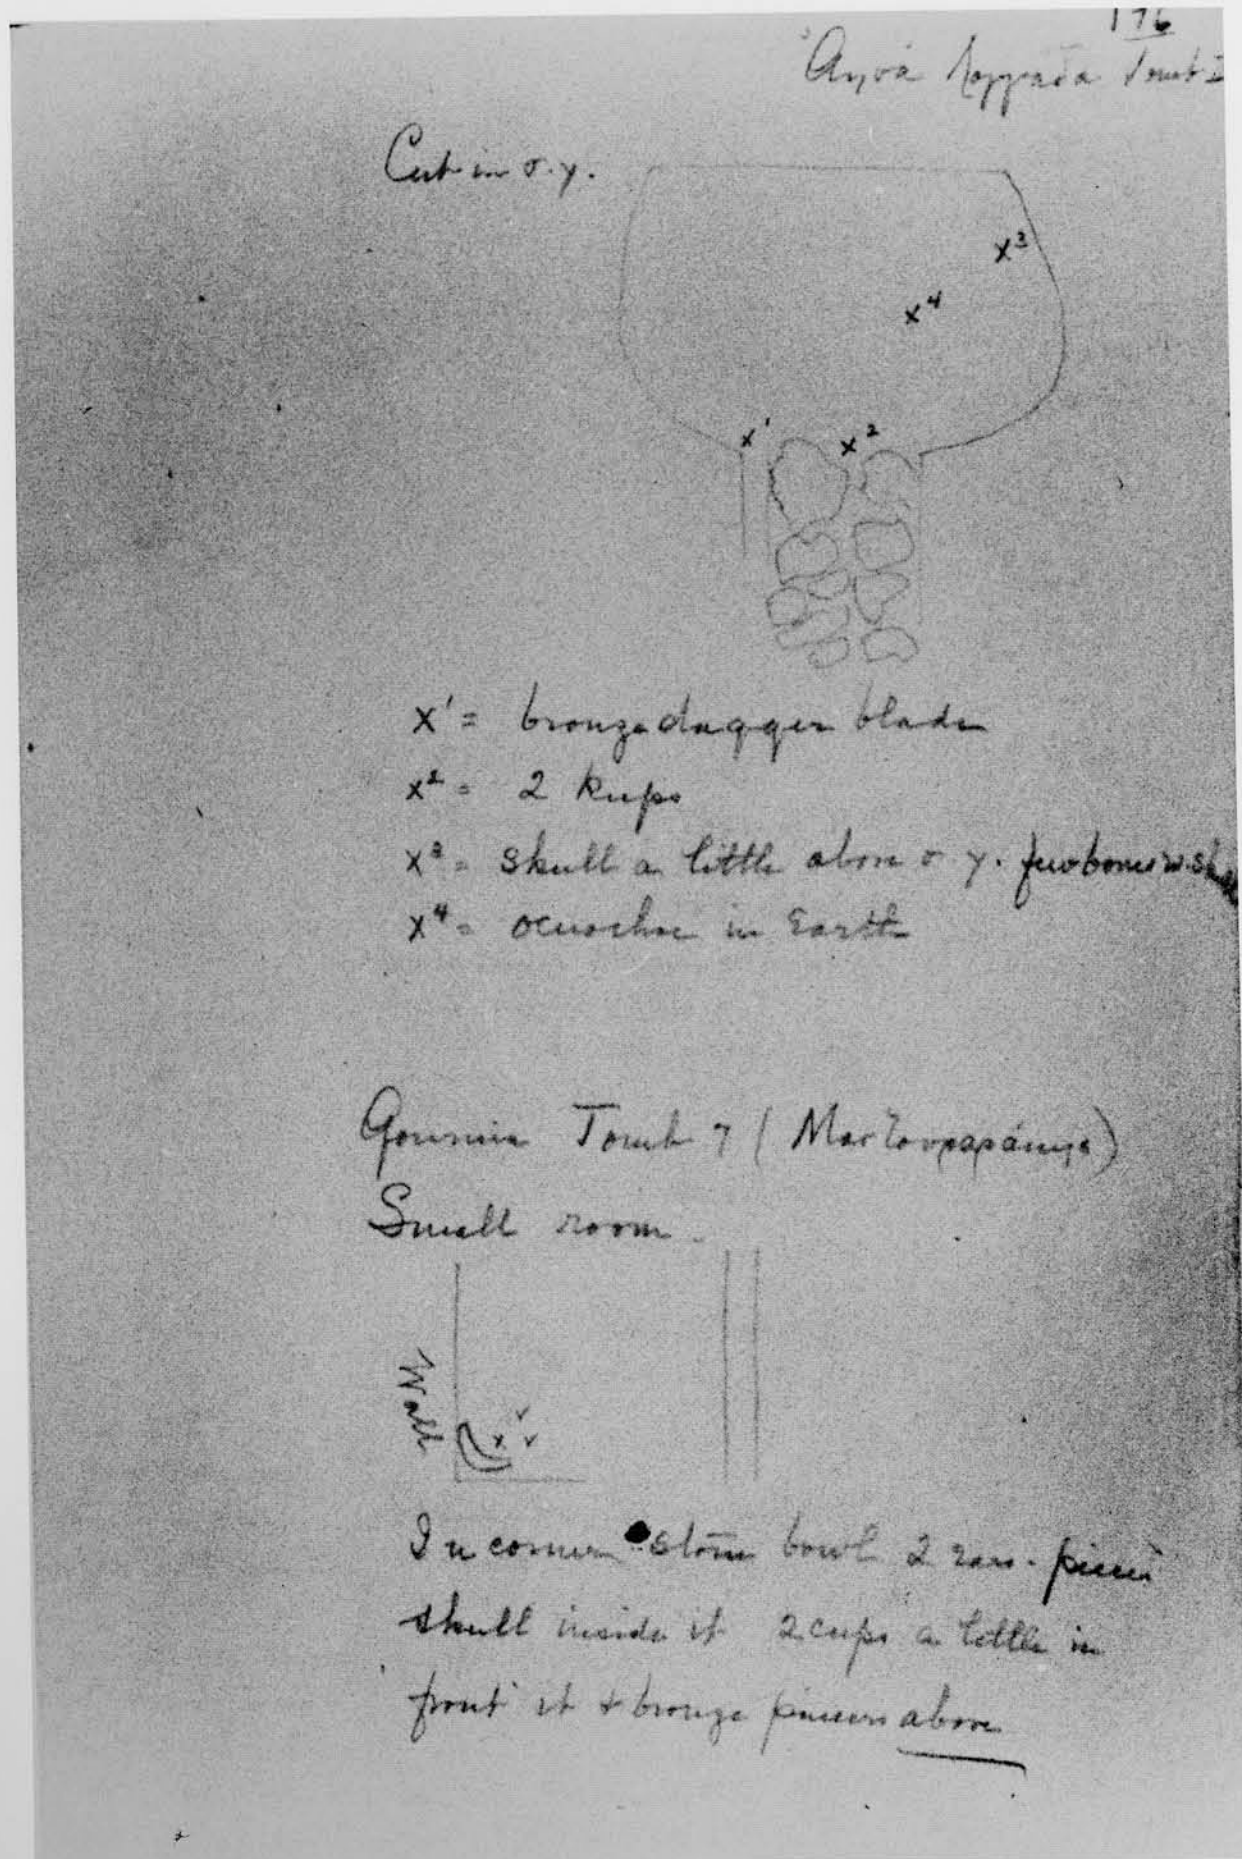 176
Tomb I
Cut in σ. γ.
x³
x⁴
x¹ x²
x¹ = bronze dagger blade
x² = 2 kups
x³ = skull a little above σ. γ. few bones w. sk
x⁴ = oenochoe in Earth
Gournia Tomb 7 (
Small room
Wall
x v v
In corner stone bowl 2 ears - pieces
skull inside it 2 cups a little in
front it & bronze pincers above